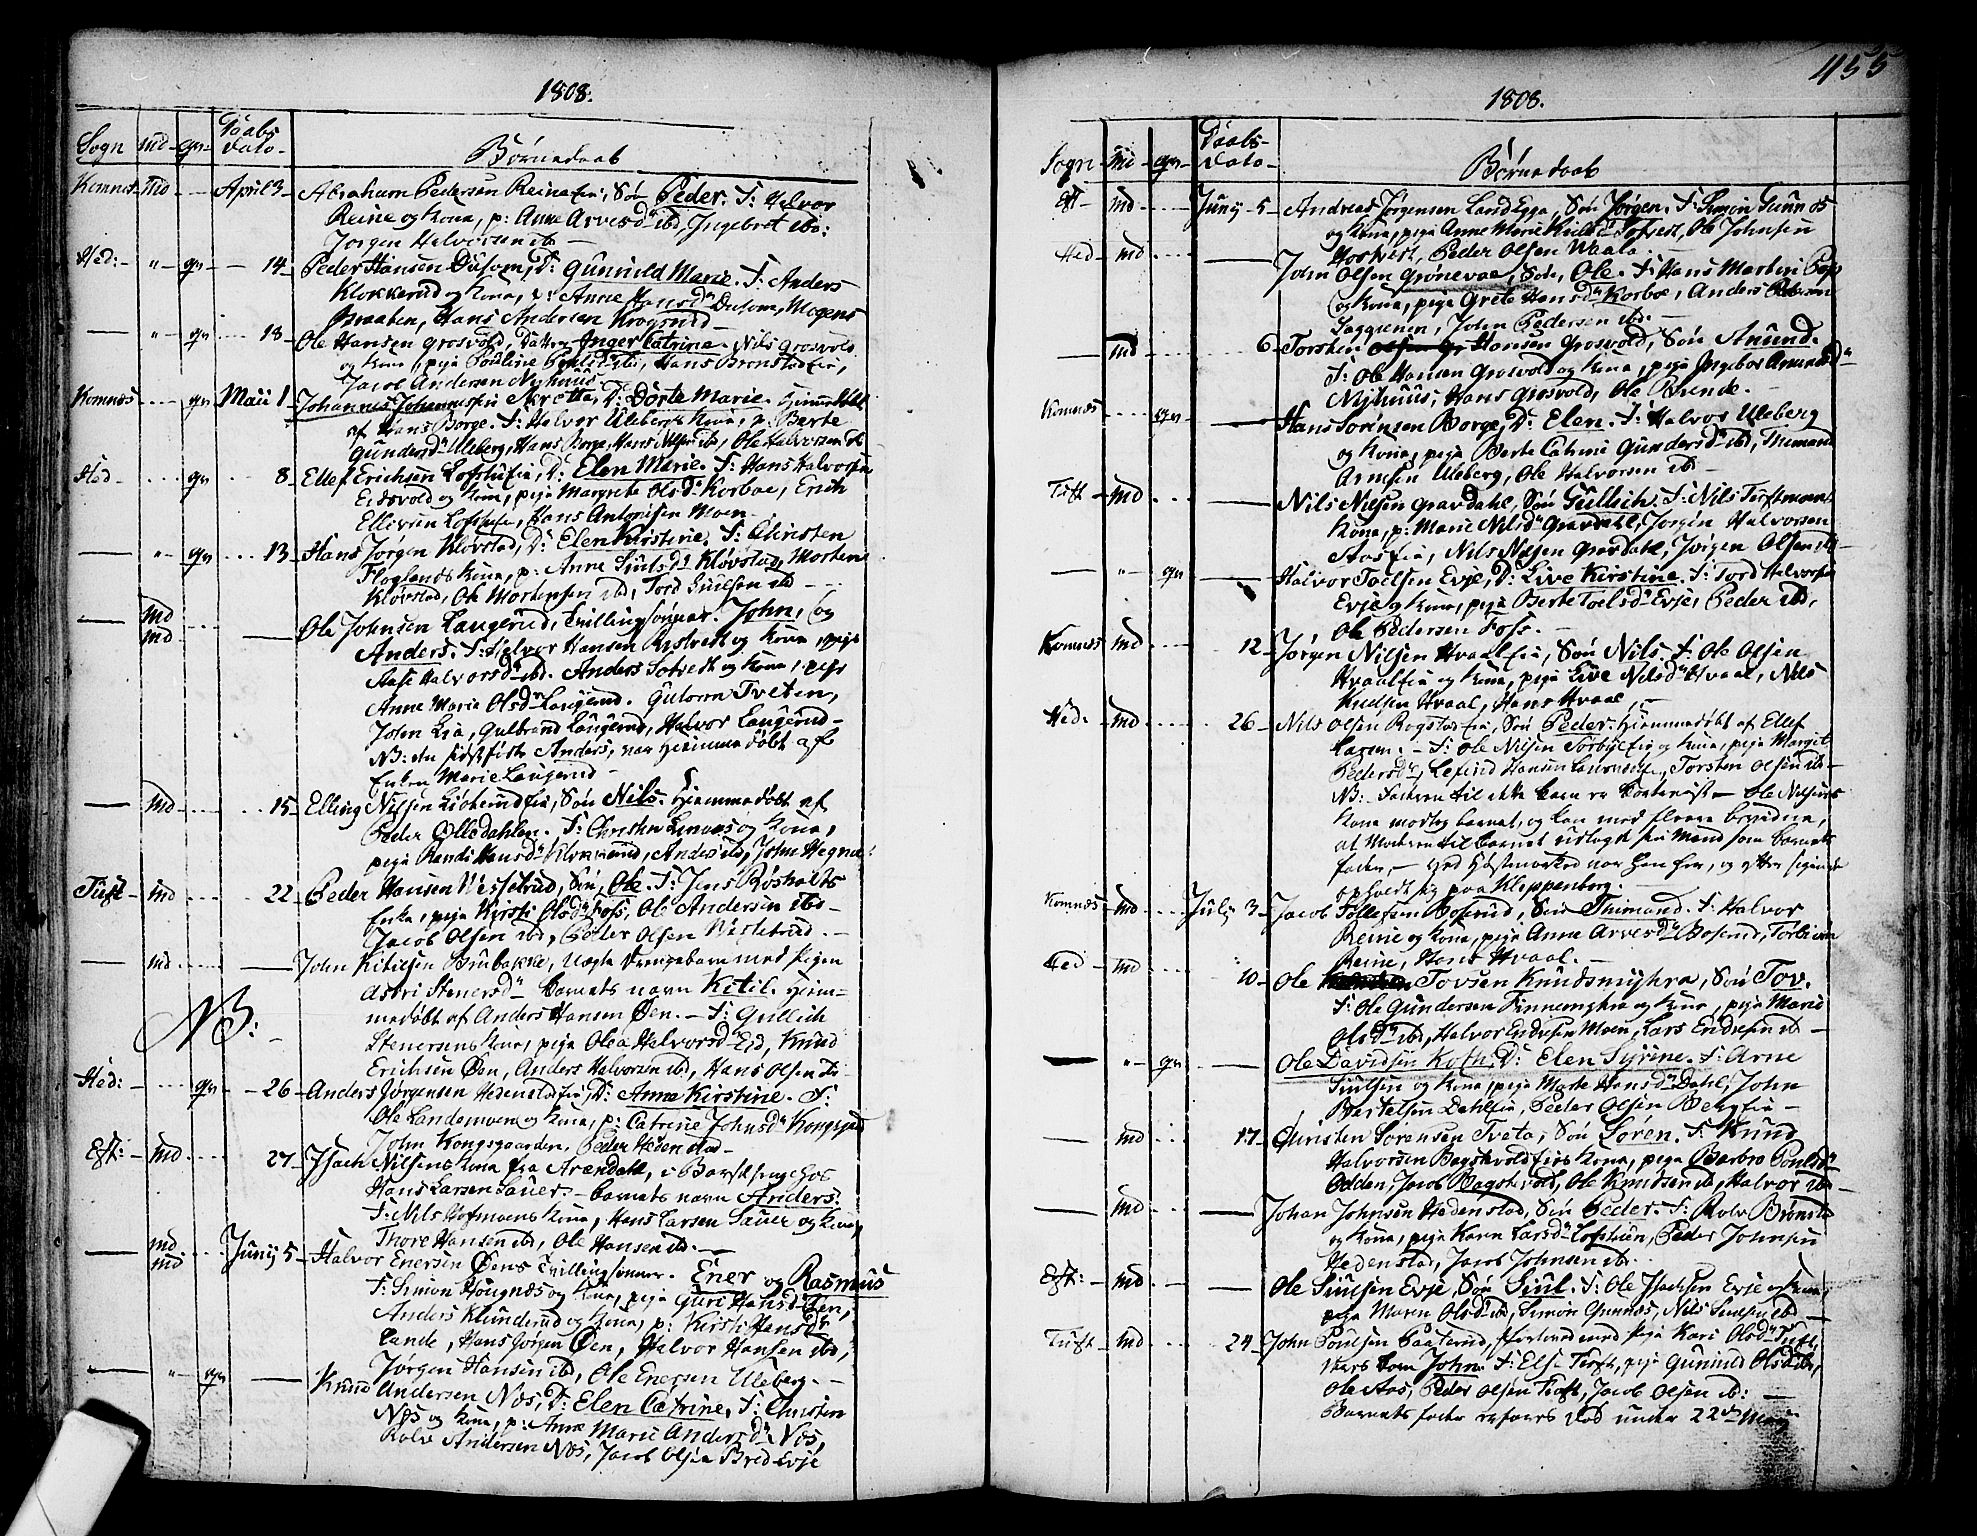 1808.
Sogn md qv Daabs dato Børnedaab
Komnes md April 3 Abraham Pedersen Reine eie, Søn Peder. F: Helvor
Reine og Kona, p: Anne Arvesdr ibd, Ingebret ibd:
Jørgen Helvorsen ibd
Hed: " qv 14 Peder Hansen Dusom, D: Gunnild Marie. F: Anders
Klokkerud og Kona, p: Anne Hansdr Dusom, Mogens
Braaten, Hans Andersen Krogsrud
" qv 18 Ole Hansen Grosvold, Datter Inger Catrine. Nils Grosvold
og Kona, pige Pouline ibd, Hans Brønstad eie,
Jacob Andersen Nyhuus
Komnes qv Maii 1 Johannes Johannesen Skretta, D: Dorte Marie. Hiemmedøbt
af Hans Borge. F: Halvor Ulebergs Kona, p: Berte
Gundersdr Uleberg, Hans Borge, Hans Nilsen ibd, Ole Halvorsen ibd
Hed qv 8 Ellef Erichsen Lofthus eie, D: Elen Marie. F: Hans Halvorsen
Eidsvold og Kona, pige Margrete Olsdr Korboe, Erich
Ellevsen, Hans Antonisen Moen
" qv 13 Hans Jørgen Kløvstad, D: Elen Kirstine. F: Christen
Floglands Kona, p: Anne Siulsdr Kløvstad, Morten
Kløvstad, Ole Mortensen ibd, Tord Siulsen ibd
md
md Ole Johnsen Laugerud, Tvillingsønner. John, og
Anders. F: Helvor Hansen og Kona, pige
Aase Halvorsdr ibd. Anders Sotvedt og Kona, pige
Anne Marie Olsdr Laugerud. Gutorm Tveten,
John Lia, Gulbrand Laugerud, Halvor Laugerud
NB: den sidstfødte Anders, var hiemmedøbt af
Enken Marie Laugerud
md 15 Elling Nilsen eie, Søn Nils. Hiemmedøbt af
Peder Ølledahlen. F: Christen og Kona,
pige Randi Hansdr Klokkerud, Anders ibd, John Hegna
Tuft md 22 Peder Hansen Vestetrud, Søn, Ole. F: Jens Røsholts
Enke, pige Kirsti Olsdr Foss, Ole Andersen ibd
Jacob Olsen ibd, Peder Olsen Vestetrud.
md John Kitilsen Brubakke, uægte Drengebarn med Pigen
Astri Stenersdr Barnets navn Kitil. Hiem-
NB: medøbt af Anders Hansen Øen. F: Gullich
Stenersens Kona, pige Olea Halvorsdr Eid, Knud
Erichsen Øen, Anders Halvorsen ibd, Hans Olsen ibd
Hed: qv 26 Anders Jørgensen Hedenstad eie, D: Anne Kirstine. F:
Ole Landemoen og Kona, p: Catrine Johnsdr
John Kongsgaarden, Peder Hedenstad
Eft: md 27 Isach Nilsens Kona fra Arendahl, i Barselseng hos
Hans Larsen Sauer. Barnets navn Anders.
F: Nils Hofmoens Kona, Hans Larsen Sauer og Kona,
Thore Hansen ibd, Ole Hansen ibd.
md
md Juny 5 Halvor Enersen Øens Tvillingsønner. Ener og Rasmus
F: Simon og Kona, pige Guri Hansdr Øen,
Anders Klunderud og Kona, p: Kirsti Hansdr
Lande, Hans Jørgen Øen, Halvor Hansen ibd,
Jørgen Hansen ibd, Ole Enersen Uleberg.
" qv Knud Andersen Næs, D: Elen Catrine. F: Christen
Næs og Kona, p: Anne Marie Andersdr Næs,
Rolv Andersen Næs, Jacob Olsen Bred Evje
455
1808.
Sogn md qv Daabs dato Børnedaab
Eft md Juny 5 Andreas Jørgensen Land Egge, Søn Jørgen. F: Simon Gunnes
og Kona, pige Anne Marie Sotvedt, Ole Johnsen
Peder Olsen Waala
Hed md John Olsen Grønevae, Søn, Ole. F: Hans Morten
og Kona, pige Grete Hansdr Korboe, Anders Pedersen
John Pedersen ibd.
md 6 Torsten Hansen Grosvold, Søn Anund.
F: Ole Hansen Grosvold og Kona, pige Ingebor
Nyhuus, Hans Grosvold, Ole Brende.
Komnes qv Hans Sørensen Borge, D: Elen. F: Halvor Uleberg
og Kona, pige Berte Catrine Gundersdr ibd, Thimand
Arnesen Uleberg, Ole Halvorsen ibd
Tuft md Nils Nilsen Gravdahl, Søn Gullich. F: Nils Tuftmoens
Kona, p: Marie Nilsdr Gravdahl, Jørgen Halvorsen
Aas eie, Nils Nilsen Gravdahl, Jørgen Olsen ibd
" qv Halvor Toelsen Evje, D: Live Kirstine. F: Tord Halvorsen
Evje og Kona, pige Berte Toelsdr Evje, Peder ibd,
Ole Pedersen Foss.
Komnes md 12 Jørgen Nilsen Hvaal eie, Søn Nils. F: Ole Olsen
Hvaal eie og Kona, pige Live Nilsdr Hvaal, Nils
Knudsen Hvaal, Hans Hvaal,
Hed: md 26 Nils Olsen Rogstad eie, Søn Peder. Hiemmedøbt af Ellef
Larsen. F: Ole Nilsen Sørbye eie og Kona, pige Margit
Pedersdr, Hansen, Torsten Olsen ibd
NB: Faderen til dette barn er Ole Nilsens
Kona modtog barnet, og kan med flere bevidne,
at Moderen til barnet udlagde sin Mand som barnets
fader. Ved Høstmarked var han her, og efter sigende
opholdt sig paa Kleppenborg.
Komnes md July 3 Jacob Tollefsen Boserud, Søn Thimand. F: Halvor
Reine og Kona, pige Anne Arvesdr Boserud, Torbiørn
Reine, Hans Hvaal.
Hed md 10 Ole Tovsen Knudsmyhra, Søn Tov.
F: Ole Gundersen Finnemyhra og Kona, pige Marie
Olsdr ibd, Halvor Endresen Moen, Lars Endresen ibd
" qv Ole Davidsen Koth, D: Elen Syrine. F: Arne
Siulsen og Kona, pige Marte Hansdr Dahl, John
Bertelsen Dahl eie, Peder Olsen Berg eie
md 17 Christen Sørensen Tveta, Søn Søren. F: Knud
Halvorsen Bagstevold eies Kona, pige Barbro Poulsdr
Odden, Jacob Bagstevold, Ole Knudsen ibd, Halvor ibd
md Johan Johnsen Hedenstad, Søn Peder. F: Rolv Brønstad
og Kona, pige Karn Larsdr, Peder Johnsen
Hedenstad, Jacob Johnsen ibd.
Eft: md Ole Siulsen Evje, Søn Siul. F: Ole Isachsen Evje og Kona,
pige Maren Olsdr ibd, Simon Gunnes, Nils Siulsen ibd
Tuft md 24 John Poulsen Saaterud, forlovet med Pige Kari Olsdr Tuft,
deres barn John. F: Els Tuft, pige Gunnild Olsdr ibd,
Ole Aas, Peder Olsen Tuft, Jacob Olsen ibd:
Barnets fader erfares død under 22de Maij